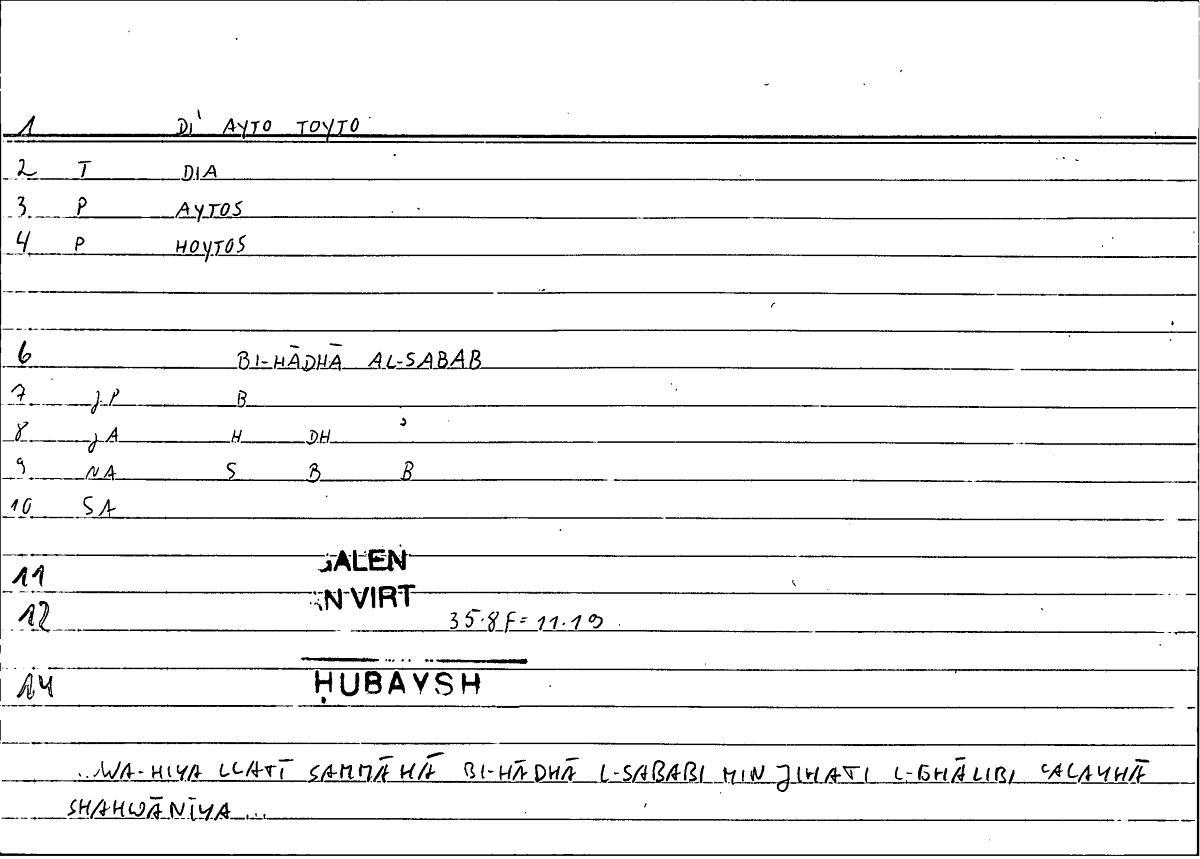 1 DI' AYTO TOYTO
2 T DIA
3 P AYTOS
4 P HOYTOS
6 BI-HĀDHĀ AL-SABAB
7 J.P B
8 JA H DH ʾ
9 NA S B B
10 SA
11 GALEN
12 AN VIRT
35.8 F = 11.19
14 ḤUBAYSH
...WA-HIYA LLATĪ SAMMĀHĀ BI-HĀDHĀ L-SABABI MIN JIHATI L-GHĀLIBI ʿALAYHĀ
SHAHWĀNĪYA...